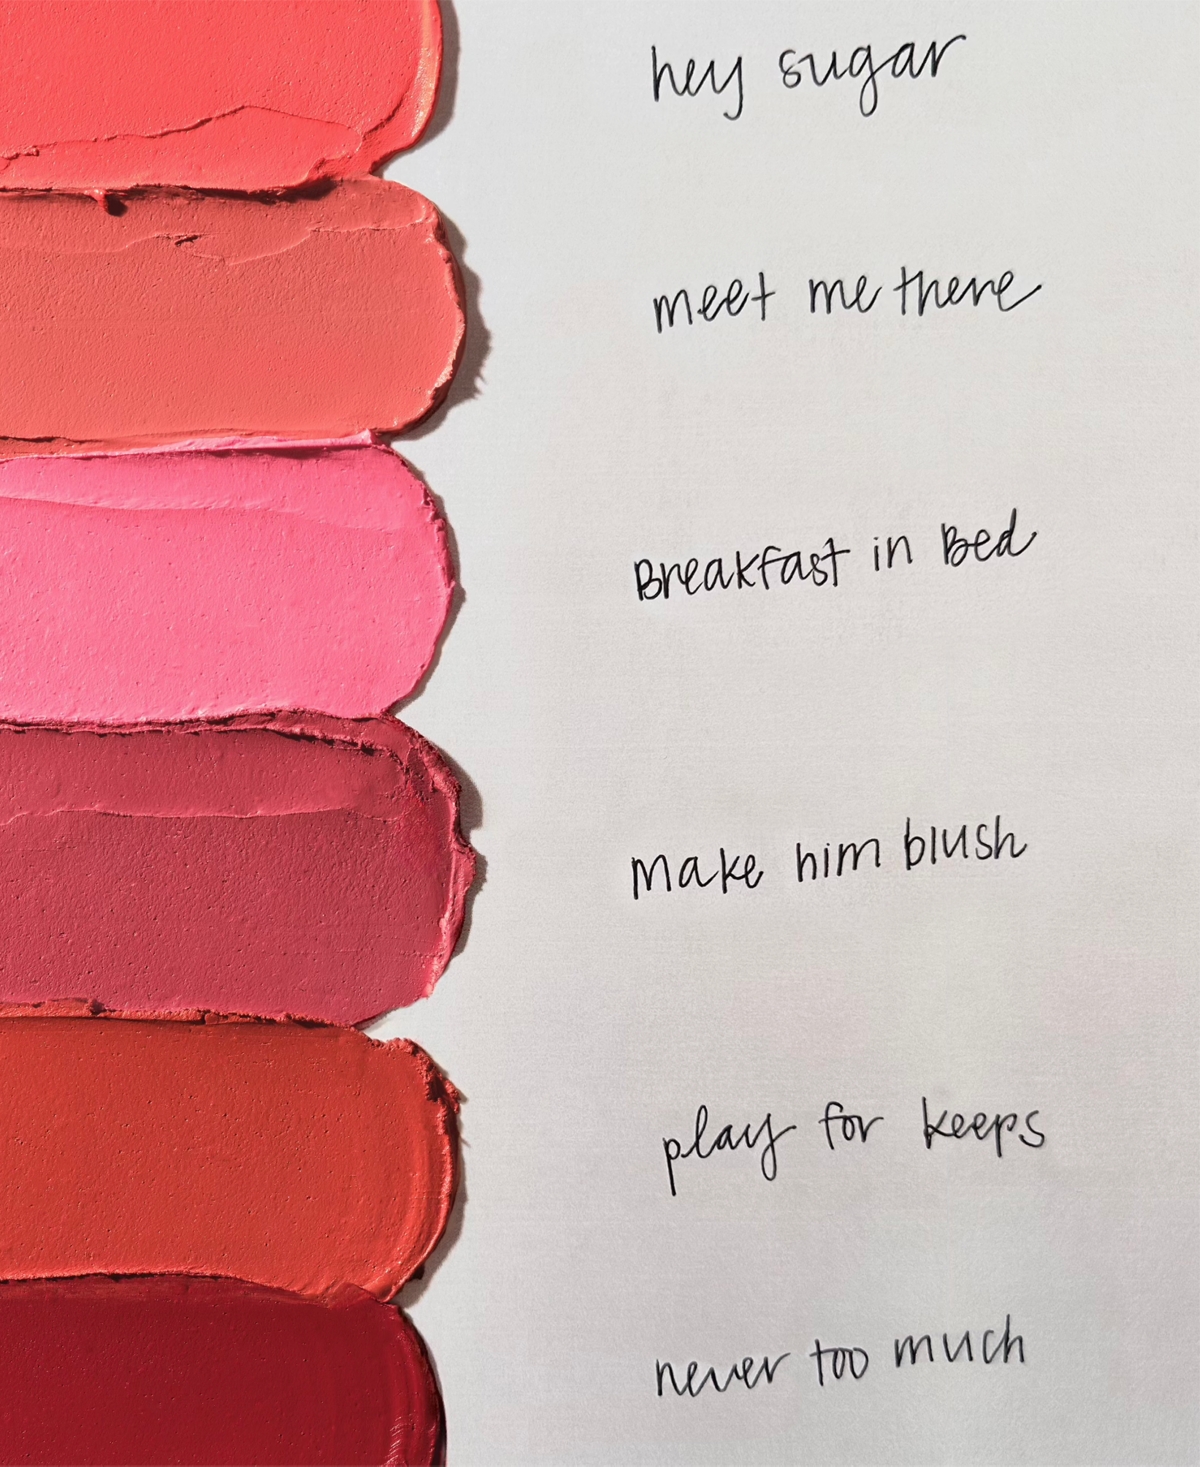 hey sugar
meet me there
Breakfast in Bed
make him blush
play for keeps
never too much